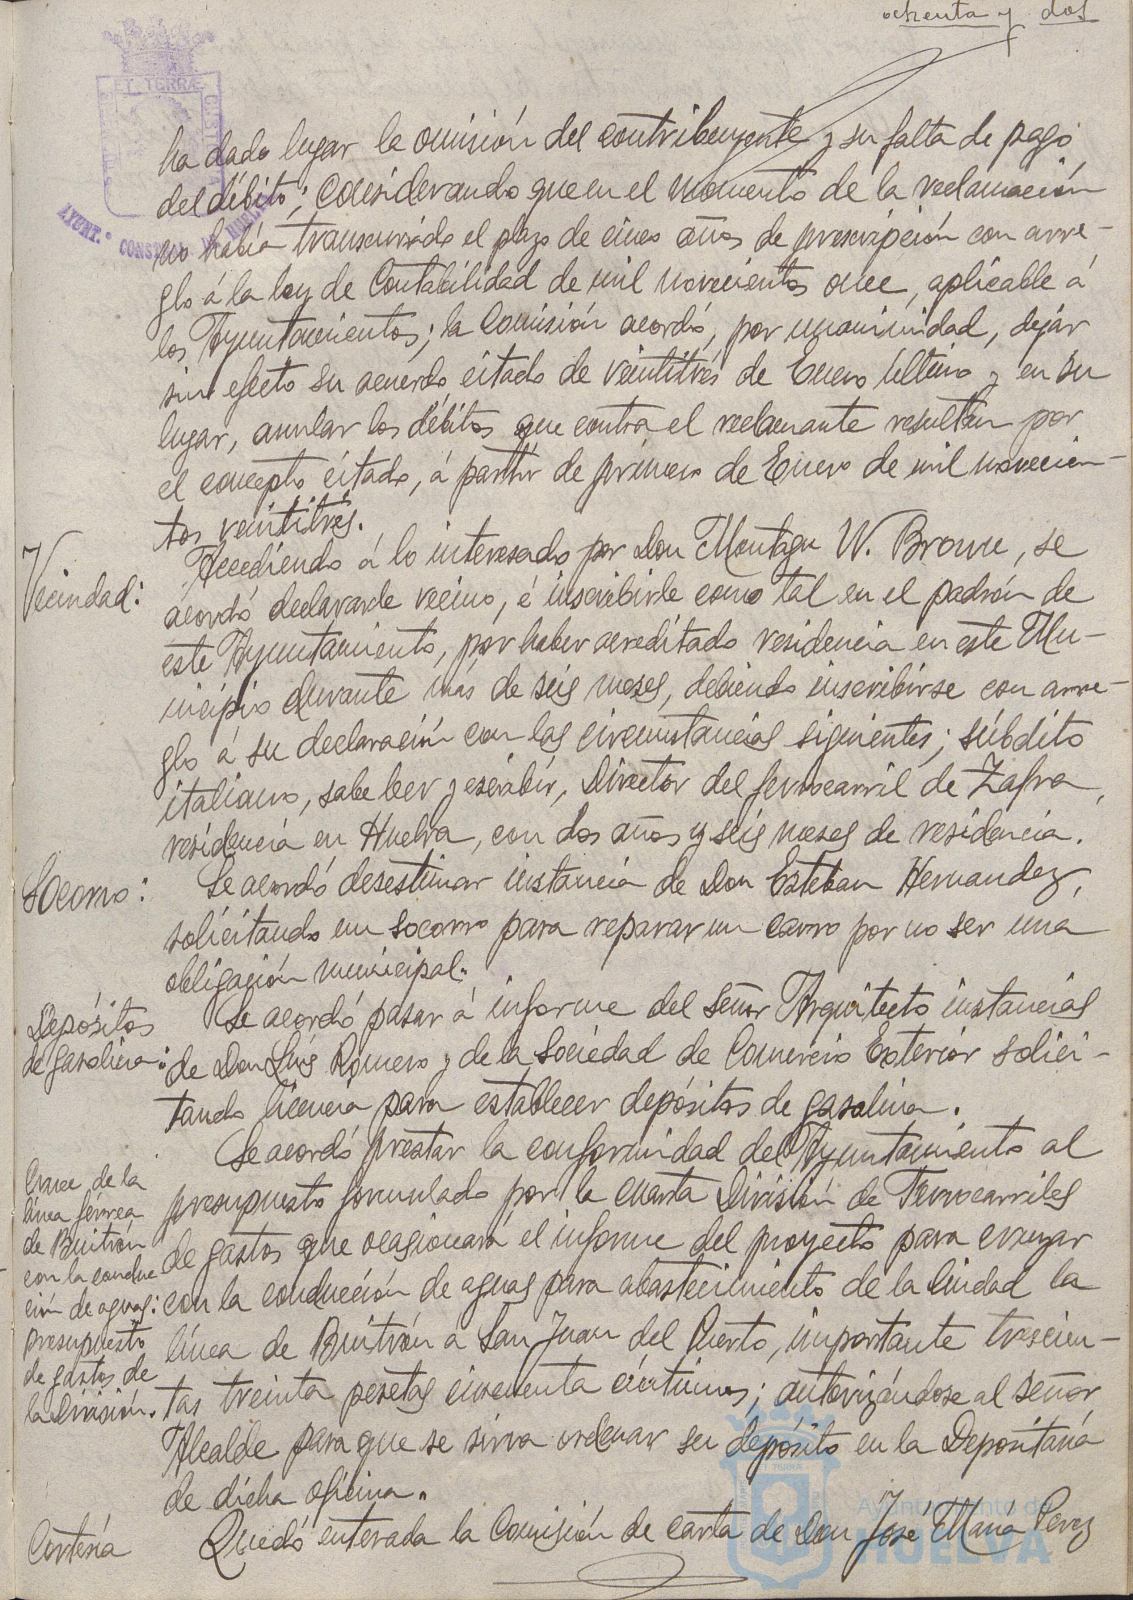 ochenta y dos
EL TERRÆ
AYUNT.
ha dado lugar la omisión del contribuyente y su falta de pago
del débito; considerando que en el momento de la reclamación
no había transcurrido el plazo de cinco años de prescripción con arre-
glo á la ley de Contabilidad de mil novecientos once, aplicable á
los Ayuntamientos; la Comisión acordó, por unanimidad, dejar
sin efecto su acuerdo citado de veintitrés de Enero último y en su
lugar, anular los débitos que contra el reclamante resultan por
el concepto citado, á partir de primero de Enero de mil novecien-
tos veintitrés.
Vecindad:
Accediendo á lo interesado por Don Montagu W. Brown, se
acordó declararle vecino, é inscribirle como tal en el padrón de
este Ayuntamiento, por haber acreditado residencia en este Mu-
nicipio durante más de seis meses, debiendo inscribirse con arre-
glo á su declaración con las circunstancias siguientes; súbdito
italiano, sabe leer y escribir, Director del ferrocarril de Zafra,
residencia en Huelva, con dos años y seis meses de residencia.
Socorro:
Se acordó desestimar instancia de Don Esteban Hernandez,
solicitando un socorro para reparar un carro por no ser una
obligación municipal.
Depósitos
de gasolina:
Se acordó pasar á informe del señor Arquitecto instancias
de Don Luis Romero y de la Sociedad de Comercio Exterior solici-
tando licencia para establecer depósitos de gasolina.
Cruce de la
línea férrea
de Buitrón
con la conduc
ción de aguas:
presupuesto
de gastos de
la División.
Se acordó prestar la conformidad del Ayuntamiento al
presupuesto formulado por la cuarta División de Ferrocarriles
de gastos que ocasionará el informe del proyecto para cruzar
con la conducción de aguas para abastecimiento de la Ciudad la
línea de Buitrón a San Juan del Puerto, importante trescien-
tas treinta pesetas cincuenta céntimos; autorizándose al señor
Alcalde para que se sirva ordenar su depósito en la Depositaría
de dicha oficina.
Cortesía
Quedó enterada la Comisión de carta de Don José María Perez
Ayuntamiento de
HUELVA